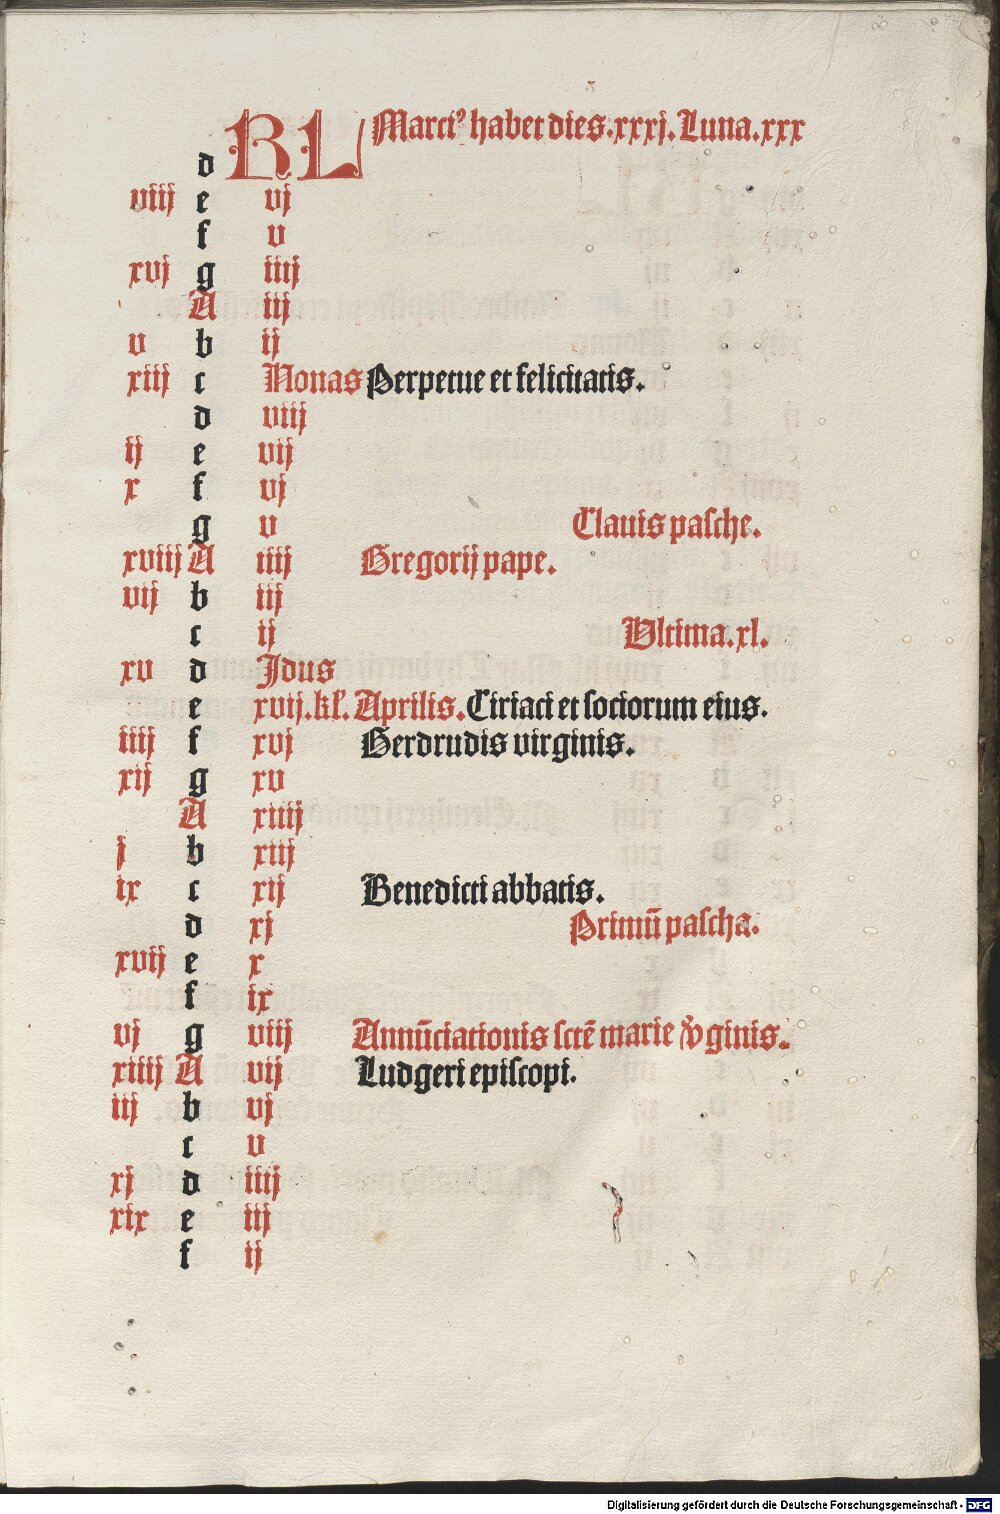 KL Marciꝰ habet dies.xxxj.Luna.xxx
d
viij e vj
f v
xvj g iiij
A iij
v b ij
xiij c Nonas Perpetue et felicitatis.
d viij
ij e vij
x f vj
g v Clauis pasche.
xviij A iiij Gregorij pape.
vij b iij
c ij Vltima.xl.
xv d Idus
e xvij.kl'.Aprilis.Ciriaci et sociorum eius.
iiij f xvj Gerdrudis virginis.
xij g xv
A xiiij
j b xiij
ix c xij Benedicti abbatis.
d xj Primū pascha.
xvij e x
f ix
vj g viij Annūciationis sctē marie v̉ginis.
xiiij A vij Ludgeri episcopi.
iij b vj
c v
xj d iiij
xix e iij
f ij
Digitalisierung gefördert durch die Deutsche Forschungsgemeinschaft - DFG